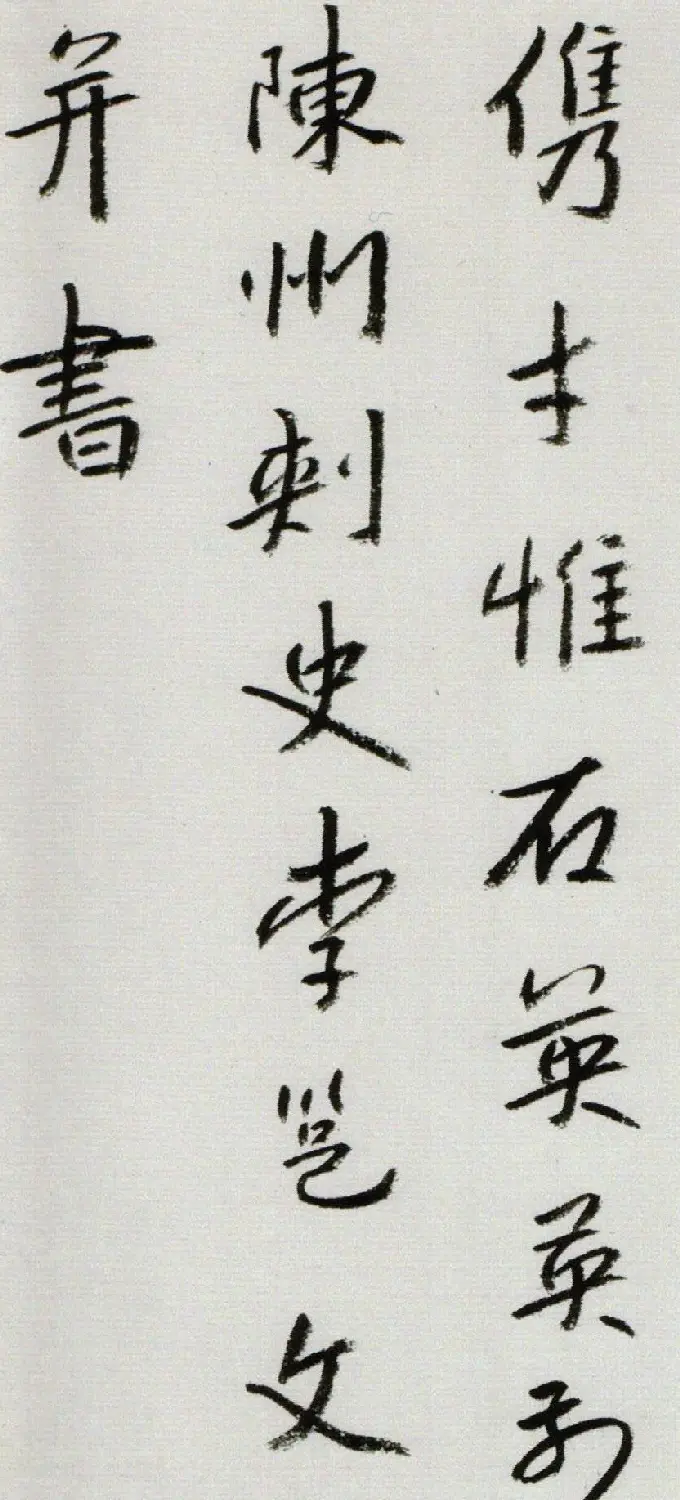 儁才惟石英英前
陳州刺史李邕文
并書